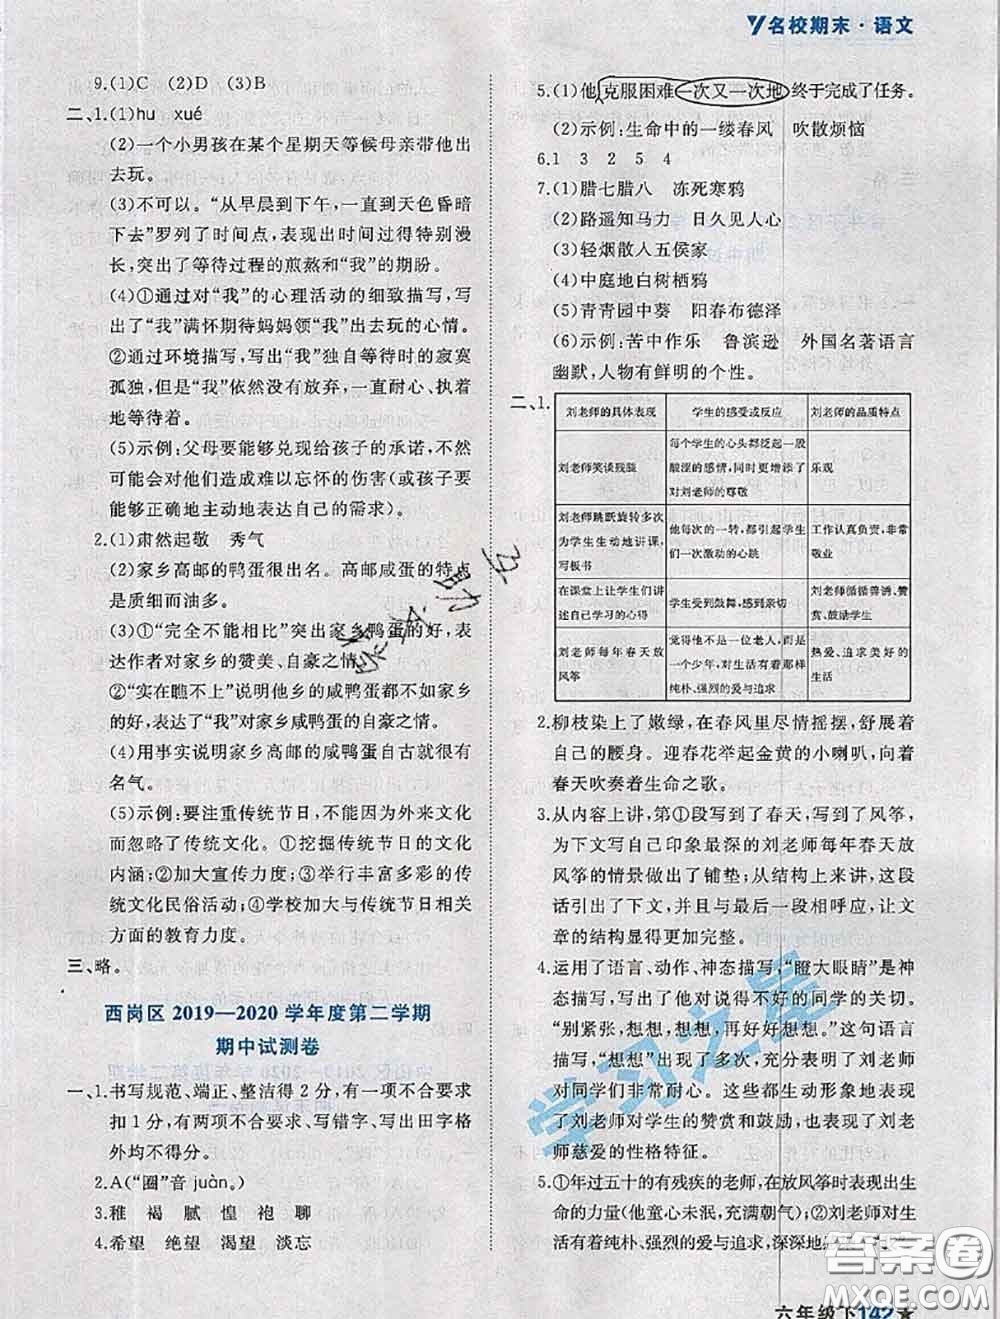 名校期末·语文
9.(1)C (2)D (3)B
二、1.(1)hu xué
(2)一个小男孩在某个星期天等候母亲带他出
去玩。
(3)不可以。“从早晨到下午,一直到天色昏暗
下去”罗列了时间点,表现出时间过得特别漫
长,突出了等待过程的煎熬和“我”的期盼。
(4)①通过对“我”的心理活动的细致描写,写
出了“我”满怀期待妈妈领“我”出去玩的心情。
②通过环境描写,写出“我”独自等待时的寂寞
孤独,但是“我”依然没有放弃,一直耐心、执着
地等待着。
(5)示例:父母要能够兑现给孩子的承诺,不然
可能对他们造成难以忘怀的伤害(或孩子要
能够正确地主动地表达自己的需求)。
2.(1)肃然起敬 秀气
(2)家乡高邮的鸭蛋很出名。高邮咸蛋的特点
是质细而油多。
(3)①“完全不能相比”突出家乡鸭蛋的好,表
达作者对家乡的赞美、自豪之情。
②“实在瞧不上”说明他乡的咸鸭蛋都不如家乡
的好,表达了“我”对家乡咸鸭蛋的自豪之情。
(4)用事实说明家乡高邮的咸鸭蛋自古就很有
名气。
(5)示例:要注重传统节日,不能因为外来文化
而忽略了传统文化。①挖掘传统节日的文化
内涵;②加大宣传力度;③举行丰富多彩的传
统文化民俗活动;④学校加大与传统节日相关
方面的教育力度。
三、略。
西岗区 2019—2020 学年度第二学期
期中试测卷
一、1.书写规范、端正、整洁得 2 分,有一项不合要求
扣 1 分,有两项不合要求、写错字、写出田字格
外均不得分。
2.A(“圈”音 juàn。)
3.稚 褐 腻 惶 袍 聊
4.希望 绝望 渴望 淡忘
5.(1)他克服困难一次又一次地终于完成了任务。
(2)示例:生命中的一缕春风 吹散烦恼
6.1 3 2 5 4
7.(1)腊七腊八 冻死寒鸦
(2)路遥知马力 日久见人心
(3)轻烟散入五侯家
(4)中庭地白树栖鸦
(5)青青园中葵 阳春布德泽
(6)示例:苦中作乐 鲁滨逊 外国名著语言
幽默,人物有鲜明的个性。
二、1.
刘老师的具体表现 学生的感受或反应 刘老师的品质特点
刘老师笑谈残腿 每个学生的心头都泛起一股酸涩的感情,同时更增添了对刘老师的尊敬 乐观
刘老师跳跃旋转多次为学生生动地讲课,写板书 他每次的一转,都引起学生们一次激动的心跳 工作认真负责,非常敬业
在课堂上让学生们讲述自己学习的心得 学生受到鼓舞,感到亲切 刘老师循循善诱、赞赏、鼓励学生
刘老师每年春天放风筝 觉得他不是一位老人,而是一个少年,对生活有着那样纯朴、强烈的爱与追求 热爱、追求美好的生活
2.柳枝染上了嫩绿,在春风里尽情摇摆,舒展着
自己的腰身。迎春花举起金黄的小喇叭,向着
春天吹奏着生命之歌。
3.从内容上讲,第①段写到了春天,写到了风筝,
为下文写自己印象最深的刘老师每年春天放
风筝的情景做了铺垫;从结构上来讲,这段
话引出了下文,并且与最后一段相呼应,让文
章的结构显得更加完整。
4.运用了语言、动作、神态描写,“瞪大眼睛”是神
态描写,写出了他对说得不好的同学的关切。
“别紧张,想想,想想,再好好想想”这句语言
描写,“想想”出现了多次,充分表明了刘老师
对同学们非常耐心。这些都生动形象地表现
了刘老师对学生的赞赏和鼓励,展现出了刘老
师慈爱的性格特征。
5.①年过五十的有残疾的老师,在放风筝时表现出生
命的力量(他童心未泯,充满朝气);②刘老师对生
活有着纯朴、强烈的爱与追求,深深地
学习之星
答案圈
MXQE.COM
六年级下 142